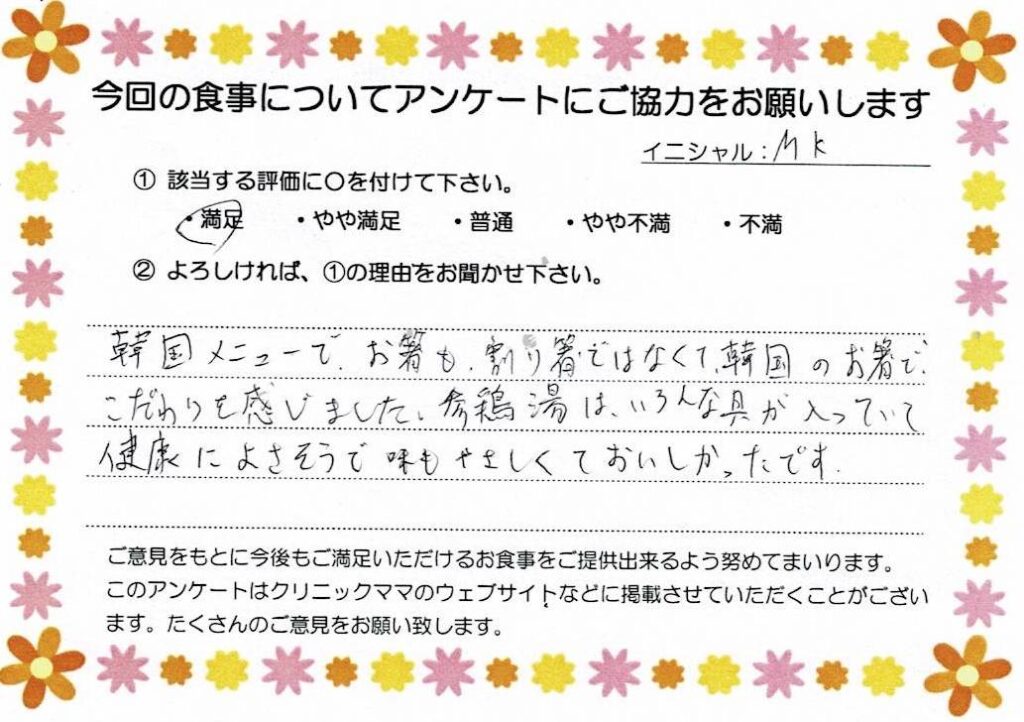 今回の食事についてアンケートにご協力をお願いします
イニシャル：MK
① 該当する評価に〇を付けて下さい。
・満足 ・やや満足 ・普通 ・やや不満 ・不満
② よろしければ、①の理由をお聞かせ下さい。
韓国メニューで、お箸も、割り箸ではなくて、韓国のお箸で、
こだわりを感じました。参鶏湯は、いろんな具が入っていて
健康によさそうで味もやさしくておいしかったです。
ご意見をもとに今後もご満足いただけるお食事をご提供出来るよう努めてまいります。
このアンケートはクリニックママのウェブサイトなどに掲載させていただくことがござい
ます。たくさんのご意見をお願い致します。